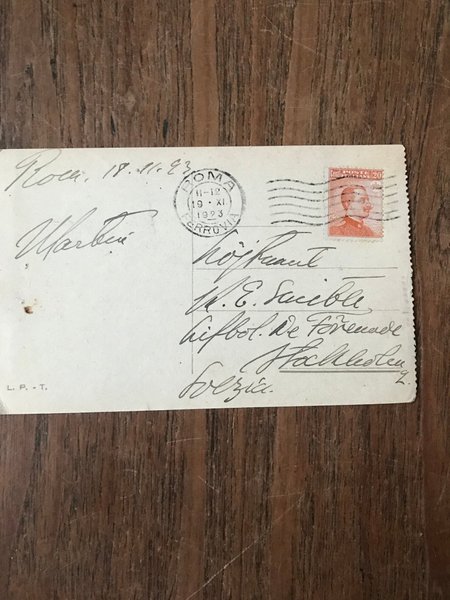 Rom. 18.11.23
ROMA
11-12
19 · XI
1923
FERROVIA
POSTE 20
Martin
Löjtnant
W. E. Smith
Lifbol. De Förenade
Stockholm
2.
Svezia.
L. P. - T.